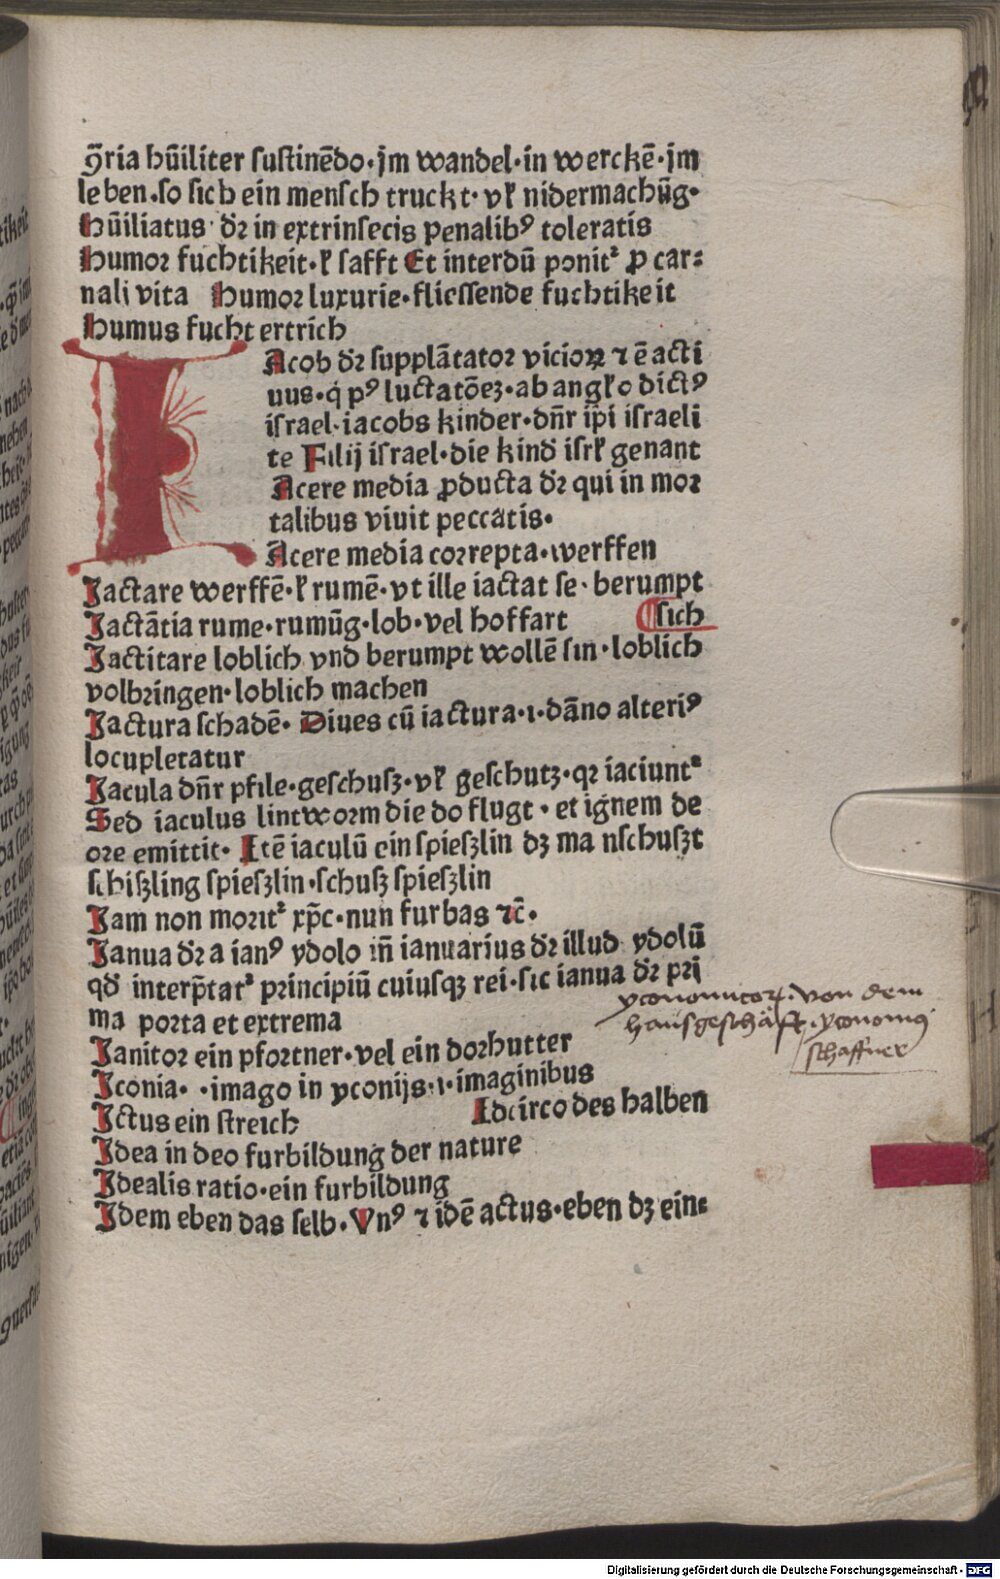 ꝯ̃ria hũiliter ſuſtinẽdo·jm wandel·in werckẽ·jm
leben·ſo ſich ein menſch truckt·vꝉ nidermachũg·
Hũiliatus·dꝛ in extrinſecis penalibꝰ toleratis
Humoꝛ fuchtikeit·ꝉ ſafft Et interdũ ponitᷣ ꝓ car⸗
nali vita Humoꝛ luxurie·flieſſende fuchtikeit
Humus fucht ertrich
IAcob dꝛ ſupplãtatoꝛ vicioꝝ ⁊ ẽ acti
uus·q̇ pꝰ luctatõeꝫ·ab angło dictꝰ
iſrael·iacobs kinder·dñr ip̃i iſraeli
te Filij iſrael·die kind iſrł genant
IAcere media ꝓducta dꝛ qui in moꝛ
talibus viuit peccatis·
IAcere media coꝛrepta·werffen
Jactare werffẽ·ꝉ rumẽ·vt ille iactat ſe·berumpt
Jactãtia rume·rumũg·lob·vel hoffart ¶ſich
Jactitare loblich vnd berumpt wollẽ ſin·loblich
volbringen·loblich machen
Jactura ſchadẽ·Diues cũ iactura·ı·dãno alteriꝰ
locupletatur
Jacula dñr pfile·geſchuſz·vꝉ geſchutz·qꝛ iaciuntᷣ
Sed iaculus lintwoꝛm die do flugt·et ignem de
oꝛe emittit·Itẽ iaculũ ein ſpieſzlin dꝫ ma nſchuſzt
ſchiſzling ſpieſzlin·ſchuſz ſpieſzlin
Jam non moꝛitᷣ xp̃c·nun furbas ⁊c̃·
Janua dꝛ a ianꝰ ydolo iñ ianuarius dꝛ illud ydolũ
qd interp̃tatᷣ principiũ cuiuſqꝫ rei·ſic ianua dꝛ pꝛi
ma poꝛta et extrema
Janitoꝛ ein pfoꝛtner·vel ein doꝛhutter
yconomicoꝝ·von dem
hausgeſchäft·yconomꝰ
ſchaffner
Iconia··imago in yconijs·ı·imaginibus
Ictus ein ſtreich Idcirco des halben
Idea in deo furbildung der nature
Idealis ratio·ein furbildung
Idem eben das ſelb·Vnꝰ ⁊ idẽ actus·eben dꝫ ein⸗
Digitalisierung gefördert durch die Deutsche Forschungsgemeinschaft · DFG